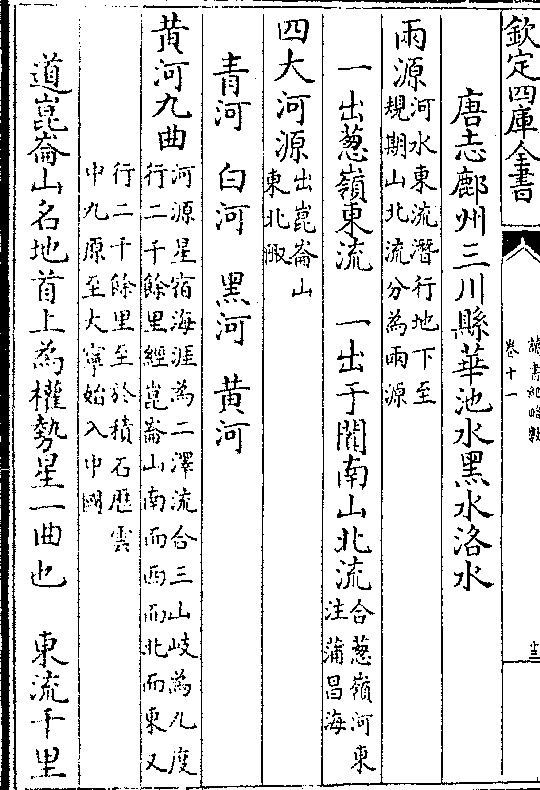 欽定四庫全書
讀書紀數畧
卷十一
十三
唐志鄜州三川縣華池水黑水洛水
兩源河水東流潛行地下至
規期山北流分為兩源
一出葱嶺東流　一出于闐南山北流合葱嶺河東
注蒲昌海
四大河源出崑崙山
東北陬
青河　白河　黑河　黄河
黄河九曲河源星宿海涯為二澤流合三山岐為九度
行二千餘里經崑崙山南而西而北而東又
行二千餘里至於積石歴雲
中九原至大寧始入中國
道崑崙山名地首上為權勢星一曲也　東流千里